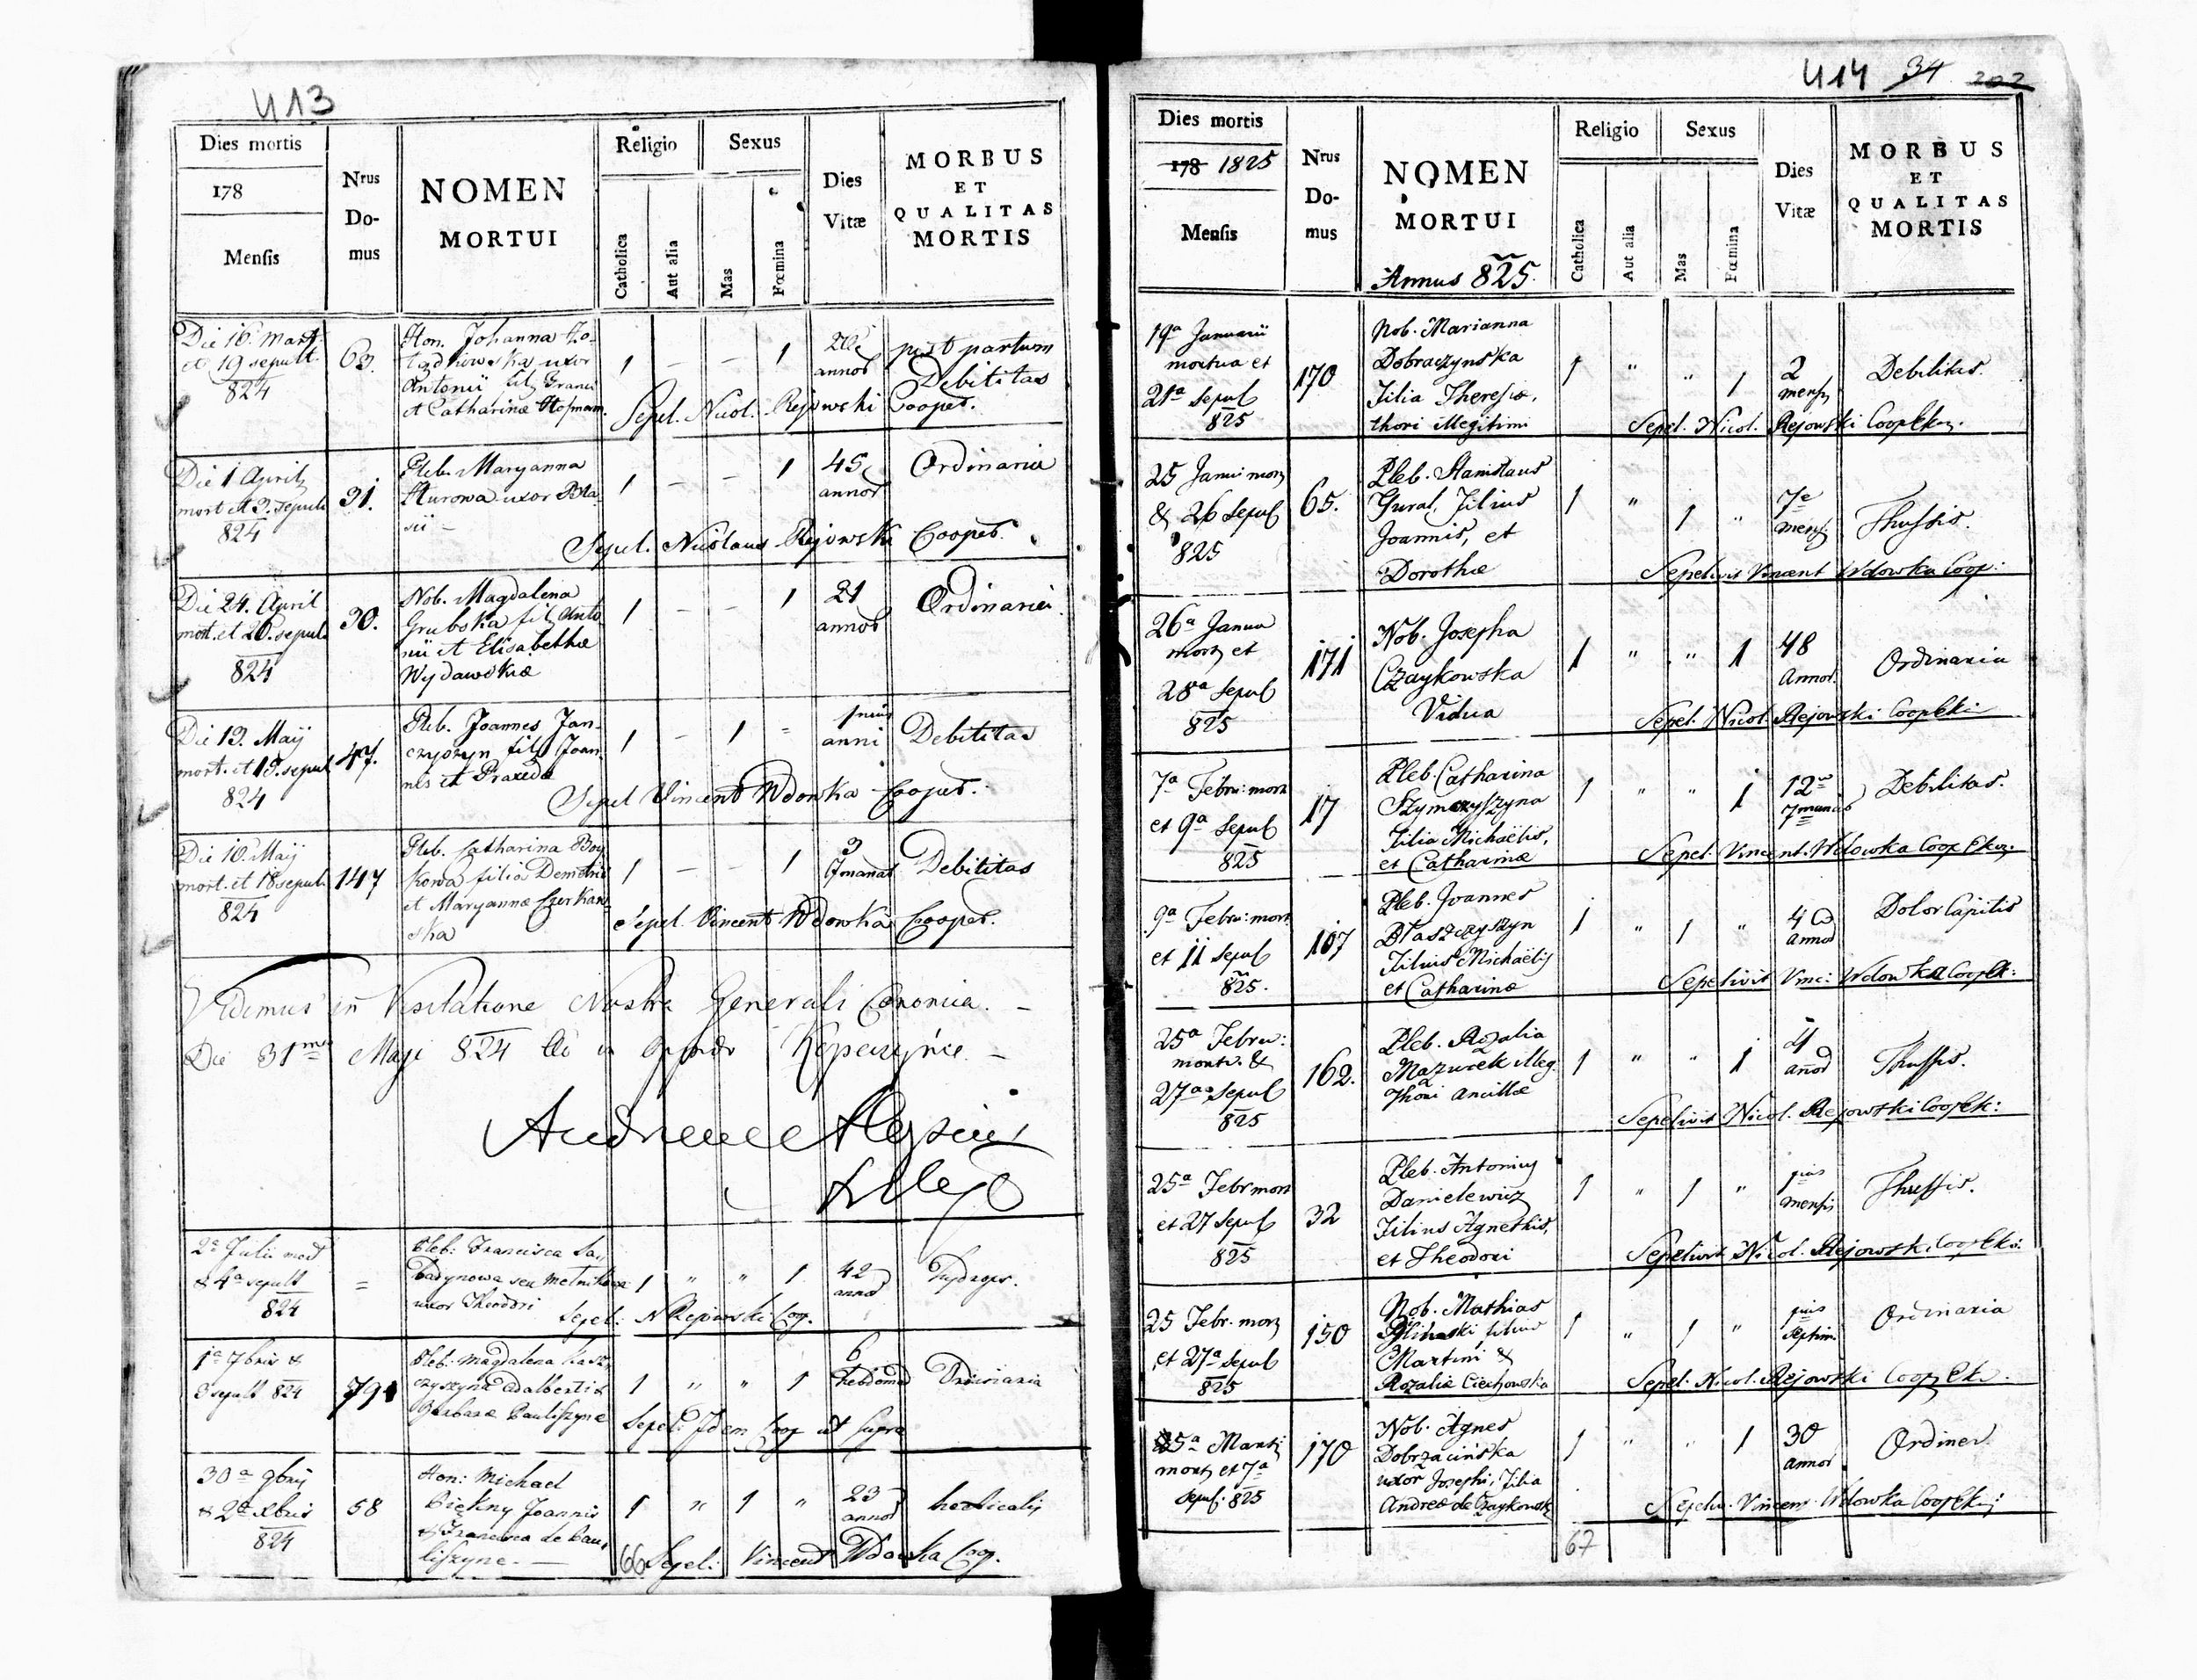 413
Dies mortis
178
Mensis
Nrus
Do-
mus
NOMEN
MORTUI
Religio
Catholica
Aut alia
Sexus
Mas
Fœmina
Dies
Vitæ
MORBUS
ET
QUALITAS
MORTIS
Die 16. Mart
et 19 sepult.
824
63.
Hon. Johanna
uxor
Antonii fil. Franci
et Catharinæ Hofman.
1 - - 1
annor
post partum
Debilitas
Sepel. Nicol. Rejowski Cooper.
Die 1 Aprilis
mort et 3. sepult
824
31.
Pleb. Maryanna
uxor Bla-
sii -
1 - - 1
45
annor
Ordinaria
Sepel. Nicolaus Rejowski Cooper.
Die 24. April
mort. et 26. sepult.
824
30.
Nob. Magdalena
Grubska fil. Anto
nii et Elisabethæ
Wydawskiæ
1 - - 1
21
annor
Ordinaria.
Die 13. Maij
mort. et 15. sepult
824
47.
Pleb. Joannes Jan-
czyszyn fil. Joan-
nis et Praxedæ
1 - 1 -
anni
Debilitas
Sepel Vincent Wdowka Cooper.
Die 16. Maij
mort. et 18 sepult.
824
147
Pleb. Catharina Boy
kowa filia Demetrii
et Maryannæ Czerkaw
ska
1 - - 1
3
7manar
Debilitas
Sepel. Vincent Wdowka Cooper.
Vidimus in Visitatione Nostra Generali Canonica. -
Die 31ma Maji 824 in Oppido Kopeczynie -
2a Julii mort
& 4a sepult
824
=
Pleb: Francisca
seu Melnikowa
uxor Theodori
1 " " 1
42
annor
Hydrops.
Sepel: N Rejowski Coop.
1a 7bris &
3 sepult 824
791
Pleb: Magdalena Kasz,
czyszyna Adalberti &
Barbaræ Pauliszyne
1 " " 1
6
hebdomad
Ordinaria
Sepel: Idem Coop ut supra
30a 9bris
& 2a Xbris
824
58
Hon: Michael
Piękny Joannis
& Francisca de Pau,
liszyne. -
1 " 1 "
23
annor
hecticalis
66 Sepel: Vincent Wdowka Coop.
414 34 202
Dies mortis
178 1825
Mensis
Nrus
Do-
mus
NOMEN
MORTUI
Annus 825.
Religio
Catholica
Aut alia
Sexus
Mas
Fœmina
Dies
Vitæ
MORBUS
ET
QUALITAS
MORTIS
19a Januarii
mortua et
21a Sepul
825
170
Nob. Marianna
Dobraczynska
Filia Theresiæ,
thori illegitimi
1 " " 1
2
mens
Debilitas.
Sepel. Nicol. Rejowski Coop Ekz.
25 Janu: mort
& 26 Sepul
825
65.
Pleb. Stanislaus
Gural, Filius
Joannis, et
Dorothæ
1 " 1 "
7
mens
Thussis.
Sepelivit Vincent Wdowka Coop:
26a Janua
mort et
28a Sepul
825
171
Nob. Josepha
Czaykowska
Vidua
1 " " 1
48
Annor.
Ordinaria
Sepel. Nicol. Rejowski Coop Ek:
7a Febru: mort
et 9a Sepul
825
17
Pleb. Catharina
Szymczyszyna
Filia Michaëlis,
et Catharinæ
1 " " 1
12
7manar
Debilitas.
Sepel. Vincent. Wdowka Coop Ekz.
9a Febru: mort
et 11 Sepul
825.
107
Pleb. Joannes
Błaszczyszyn
Filius Michaëlis
et Catharinæ
1 " 1 "
annor
Dolor Capitis
Sepelivit Vinc: Wdowka Coop Ek:
25a Febru:
mort. &
27a Sepul
825
162.
Pleb. Rozalia
Mazurek illeg.
Thori ancillæ
1 " " 1
4
anor
Thussis.
Sepelivit Nicol. Rejowski Coop Ek:
25a Febr mort
et 27 Sepul
825
32
Pleb. Antonius
Danielewicz
Filius Agnethis,
et Theodori
1 " 1 "
mensis
Thussis.
Sepelivit Nicol. Rejowski Coop Ek:
25 Febr. mort
et 27a Sepul
825
150
Nob. Mathias
filius
Martini &
Rozaliæ Ciechowska
1 " 1 "
Septim
Ordinaria
Sepel. Nicol. Rejowski Coop Ek.
5a Martij
mort et 7a
Sepul: 825
170
Nob. Agnes
Dobrzacińska
uxor Josephi, Filia
Andreæ de Czaykowsk
1 " " 1
30
annor
Ordiner.
Sepeliv. Vincent Wdowka Coop Ek:
67